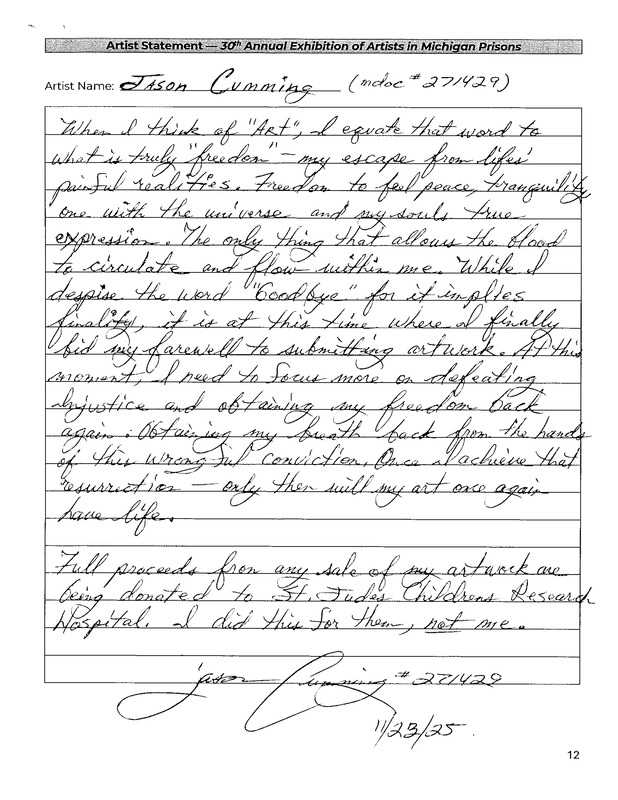 Artist Statement — 30th Annual Exhibition of Artists in Michigan Prisons
Artist Name: Jason Cumming (mdoc # 271429)
When I think of "Art", I equate that word to
what is truly "freedom" - my escape from lifes'
painful realities. Freedom to feel peace, tranquility
one with the universe and my souls true
expression. The only thing that allows the blood
to circulate and flow within me. While I
despise the word "Goodbye" for it implies
finality, it is at this time where I finally
bid my farewell to submitting artwork. At this
moment, I need to focus more on defeating
Injustice and obtaining my freedom back
again. Obtaining my breath back from the hands
of this wrongful conviction. Once I achieve that
resurrection - only then will my art once again
have life.
Full proceeds from any sale of my artwork are
being donated to St. Judes Childrens Research
Hospital. I did this for them, not me.
Jason Cumming # 271429
11/23/25.
12